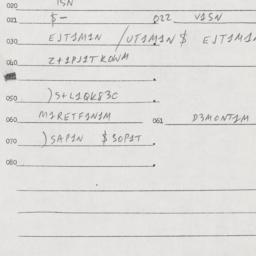 020 ISN
021 $- 022 VISN
030 EJT1M1N /UT1M1N $ EJT1M1
040 Z+1PJ1TKOWM
050 )S+L1QK83C
060 M1RETF1N1M 061 D3MONT1M
070 )SAP1N $ 3OP1T
080